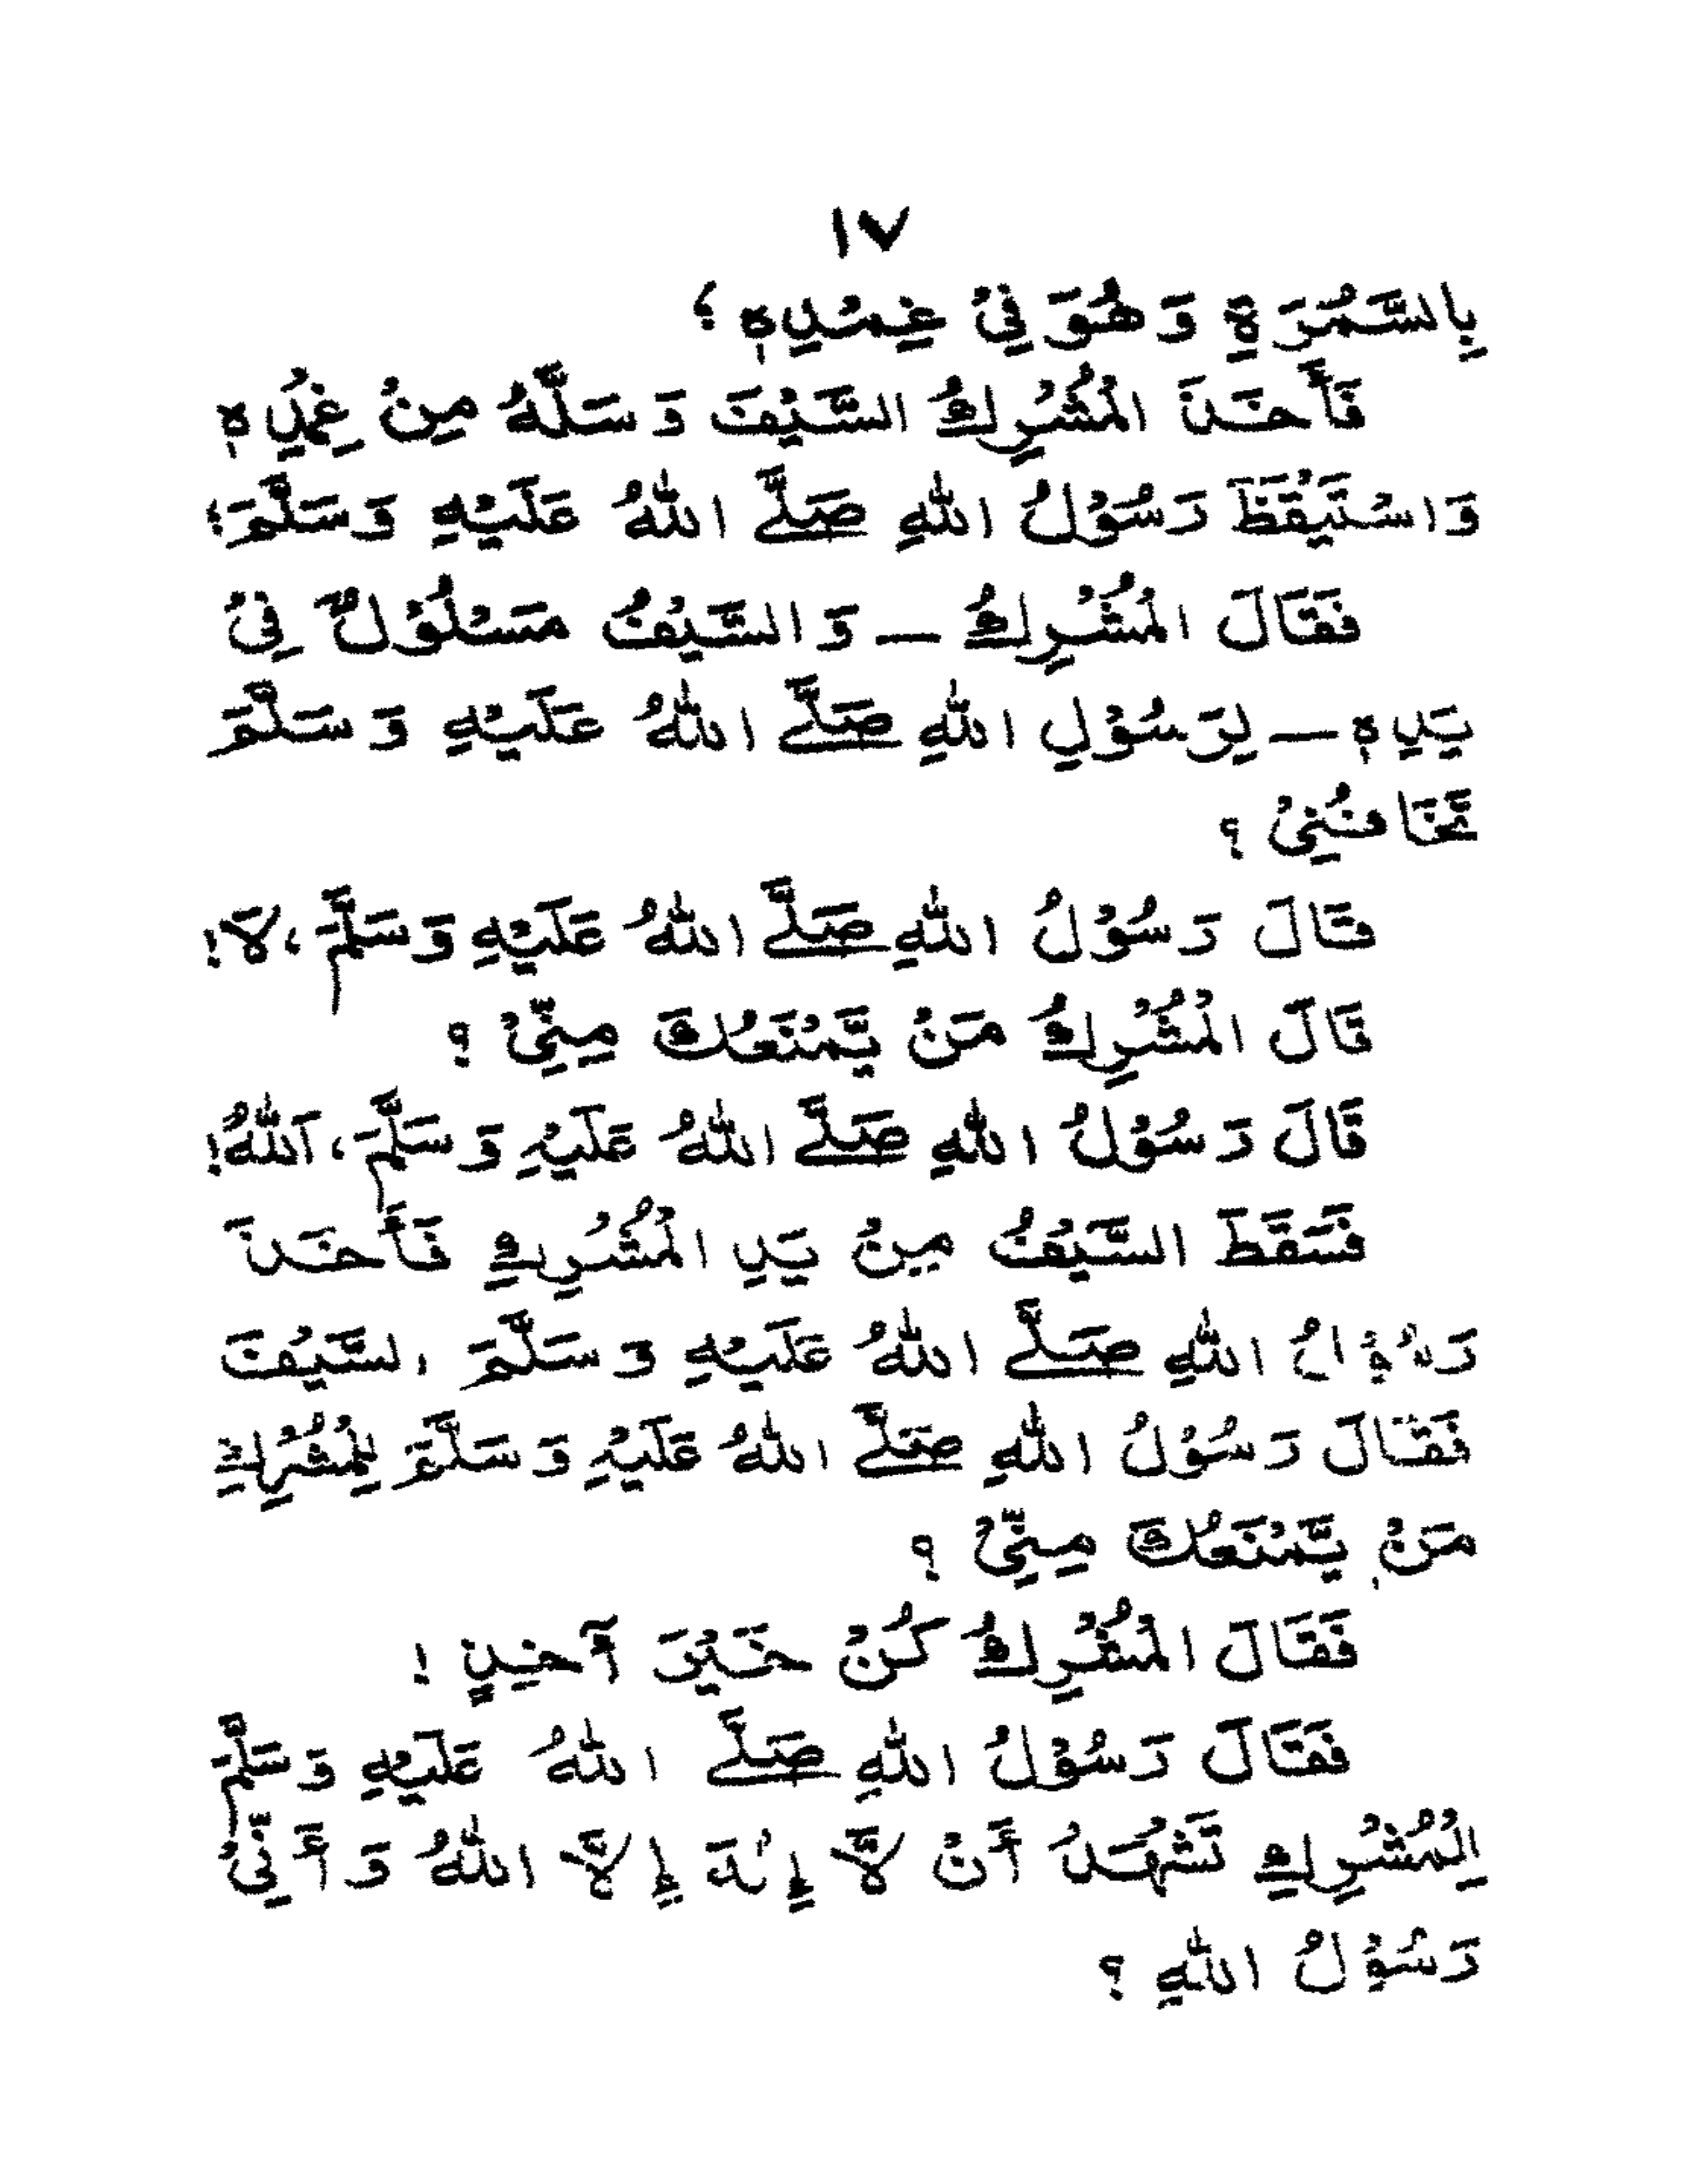 ١٧
بِالسَّمُرَةِ وَهُوَ فِيْ غِمْدِهٖ ؛
فَأَخَذَ الْمُشْرِكُ السَّيْفَ وَسَلَّهُ مِنْ غِمْدِهٖ
وَاسْتَيْقَظَ رَسُوْلُ اللهِ صَلَّے اللهُ عَلَيْهِ وَسَلَّمَ؛
فَقَالَ الْمُشْرِكُ — وَالسَّيْفُ مَسْلُوْلٌ فِيْ
يَدِهٖ — لِرَسُوْلِ اللهِ صَلَّے اللهُ عَلَيْهِ وَسَلَّمَ
تَخَافُنِيْ ؟
قَالَ رَسُوْلُ اللهِ صَلَّے اللهُ عَلَيْهِ وَسَلَّمَ، لَا!
قَالَ الْمُشْرِكُ مَنْ يَّمْنَعُكَ مِنِّيْ ؟
قَالَ رَسُوْلُ اللهِ صَلَّے اللهُ عَلَيْهِ وَسَلَّمَ، اَللهُ!
فَسَقَطَ السَّيْفُ مِنْ يَدِ الْمُشْرِكِ فَأَخَذَ
رَسُوْلُ اللهِ صَلَّے اللهُ عَلَيْهِ وَسَلَّمَ السَّيْفَ
فَقَالَ رَسُوْلُ اللهِ صَلَّے اللهُ عَلَيْهِ وَسَلَّمَ لِلْمُشْرِكِ
مَنْ يَّمْنَعُكَ مِنِّيْ ؟
فَقَالَ الْمُشْرِكُ كُنْ خَيْرَ آخِذٍ !
فَقَالَ رَسُوْلُ اللهِ صَلَّے اللهُ عَلَيْهِ وَسَلَّمَ
لِلْمُشْرِكِ تَشْهَدُ أَنْ لَّا إِلٰهَ إِلَّا اللهُ وَأَنِّيْ
رَسُوْلُ اللهِ ؟